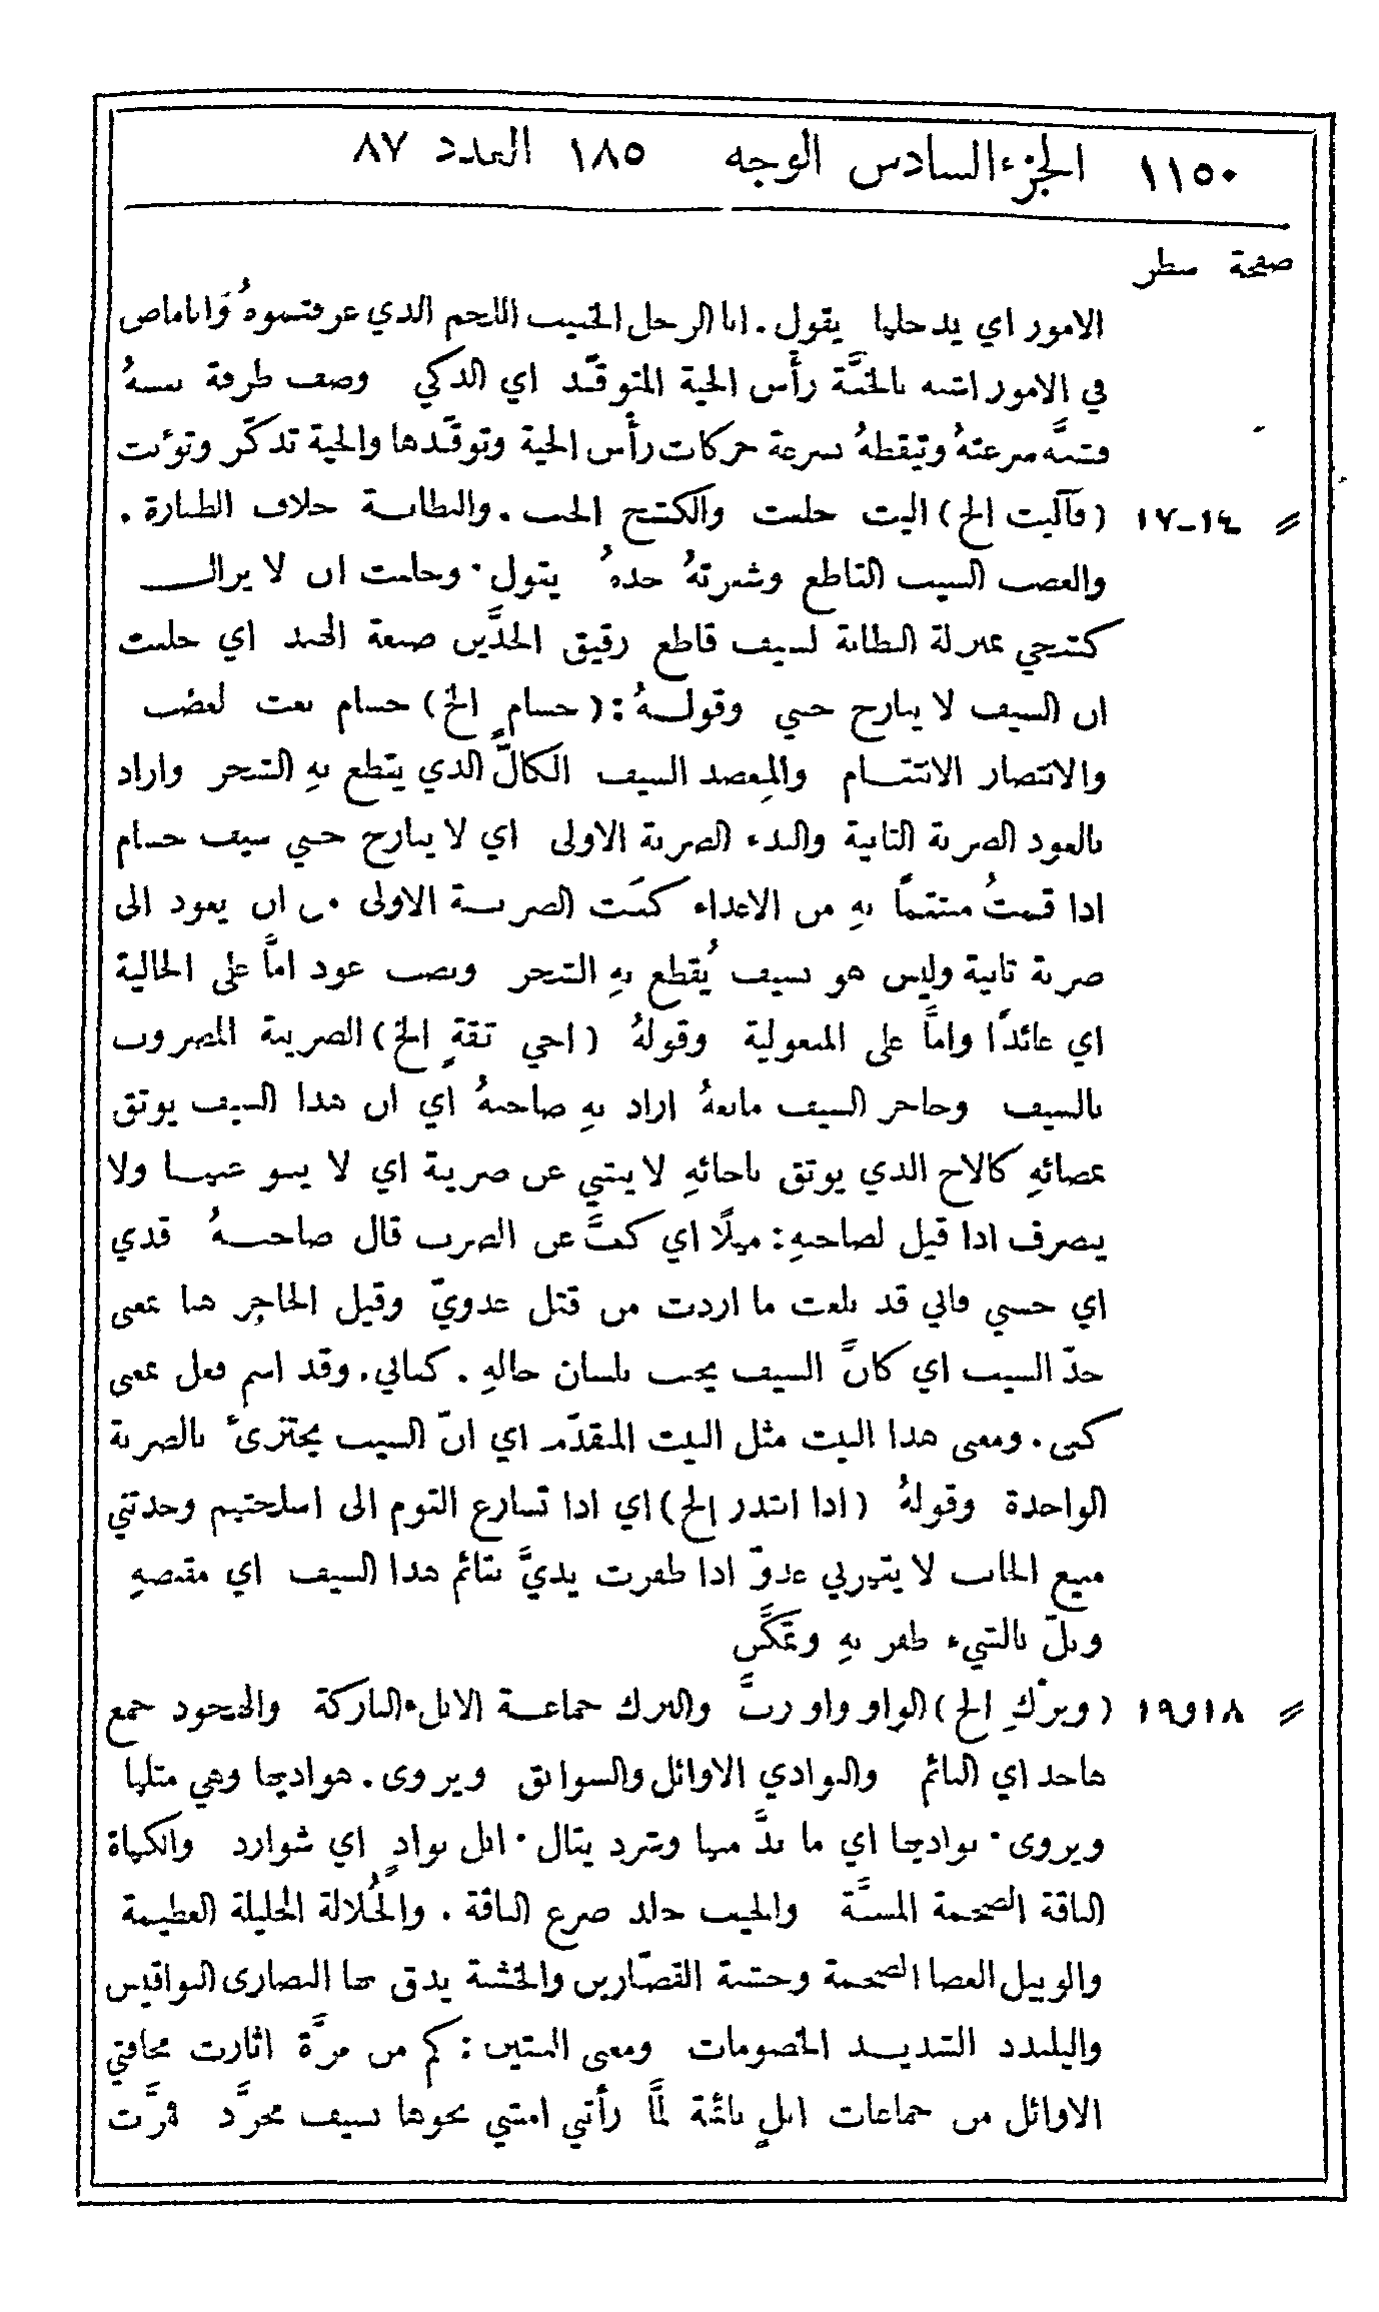 ١١٥٠ الجزء السادس الوجه ١٨٥ العدد ٨٧
صفحة سطر
الامور اي يدخلها يقول. انا الرجل الخفيف اللحم الذي عرفتموهُ وَانا ماض
في الامور اشبه بالخفَّة رأْس الحية المتوقّد اي الذكي وصف طرفة نفسهُ
فشبَّه سرعتهُ وتيقظهُ بسرعة حركات رأْس الحية وتوقّدها والحية تذكّر وتوٴنث
〃 ١٤-١٧ (فآليت الخ) اليت حلفت والكشح الجنب. والبطانة خلاف الظهارة.
والعضب السيف القاطع وشفرتهُ حدهُ يقول. وحلفت ان لا يزال
كشحي بمنزلة البطانة لسيف قاطع رقيق الحدَّين صنعة الهند اي حلفت
ان السيف لا يبارح جنبي وقولهُ: (حسامٍ الخ) حسام نعت لعضب
والانتصار الانتقام والمِعضد السيف الكالّ الذي يقطع بهِ الشجر واراد
بالعود الضربة الثانية والبدء الضربة الاولى اي لا يبارح جنبي سيف حسام
اذا قمتُ منتقمًا بهِ من الاعداء كفت الضربة الاولى من ان يعود الى
ضربة ثانية وليس هو بسيف يُقطع بهِ الشجر ونصب عود امَّا على الحالية
اي عائدًا وامَّا على المفعولية وقولهُ (اخي ثقةٍ الخ) الضريبة المضروب
بالسيف وحاجز السيف مانعهُ اراد بهِ صاحبهُ اي ان هذا السيف يوثق
بمضائهِ كالاخ الذي يوثق باخائهِ لا ينثني عن ضريبة اي لا ينبو عنها ولا
ينصرف اذا قيل لصاحبهِ: مهلًا اي كفَّ عن الضرب قال صاحبهُ قدي
اي حسبي فاني قد بلغت ما اردت من قتل عدويّ وقيل الحاجِز هنا بمعنى
حدّ السيف اي كانَّ السيف يجيب بلسان حالهِ. كفاني. وقد اسم فعل بمعنى
كفى. ومعنى هذا البيت مثل البيت المقدّم اي انّ السيف يجتزىٔ بالضربة
الواحدة وقولهُ (اذا ابتدر الخ) اي اذا تسارع القوم الى اسلحتهم وجدتني
منيع الجانب لا يقهرني عدوّ اذا ظفرت يديَّ بقائم هذا السيف اي مقبضهِ
وبلّ بالشيء ظفر بهِ وتمكَّن
〃 ١٨و١٩ (وبرْكِ الخ) الواو واو ربَّ والبرك جماعة الابل الباركة والهجود جمع
هاجد اي النائم والبوادي الاوائل والسوابق ويروى. هواديها وهي مثلها
ويروى. نواديها اي ما ندَّ منها وشرد يقال. ابل نوادٍ اي شوارد والكهاة
الناقة الضخمة المسنَّة والخيف جلد ضرع الناقة. والجُلالة الجليلة العظيمة
والوبيل العصا الضخمة وخشبة القصّارين والخشبة يدق بها النصارى النواقيس
واليلندد الشديد الخصومات ومعنى البيتين: كم من مرَّة اثارت مخافتي
الاوائل من جماعات ابلٍ نائمة لمَّا رأَتني امشي نحوها بسيف مجرَّد فمرَّت